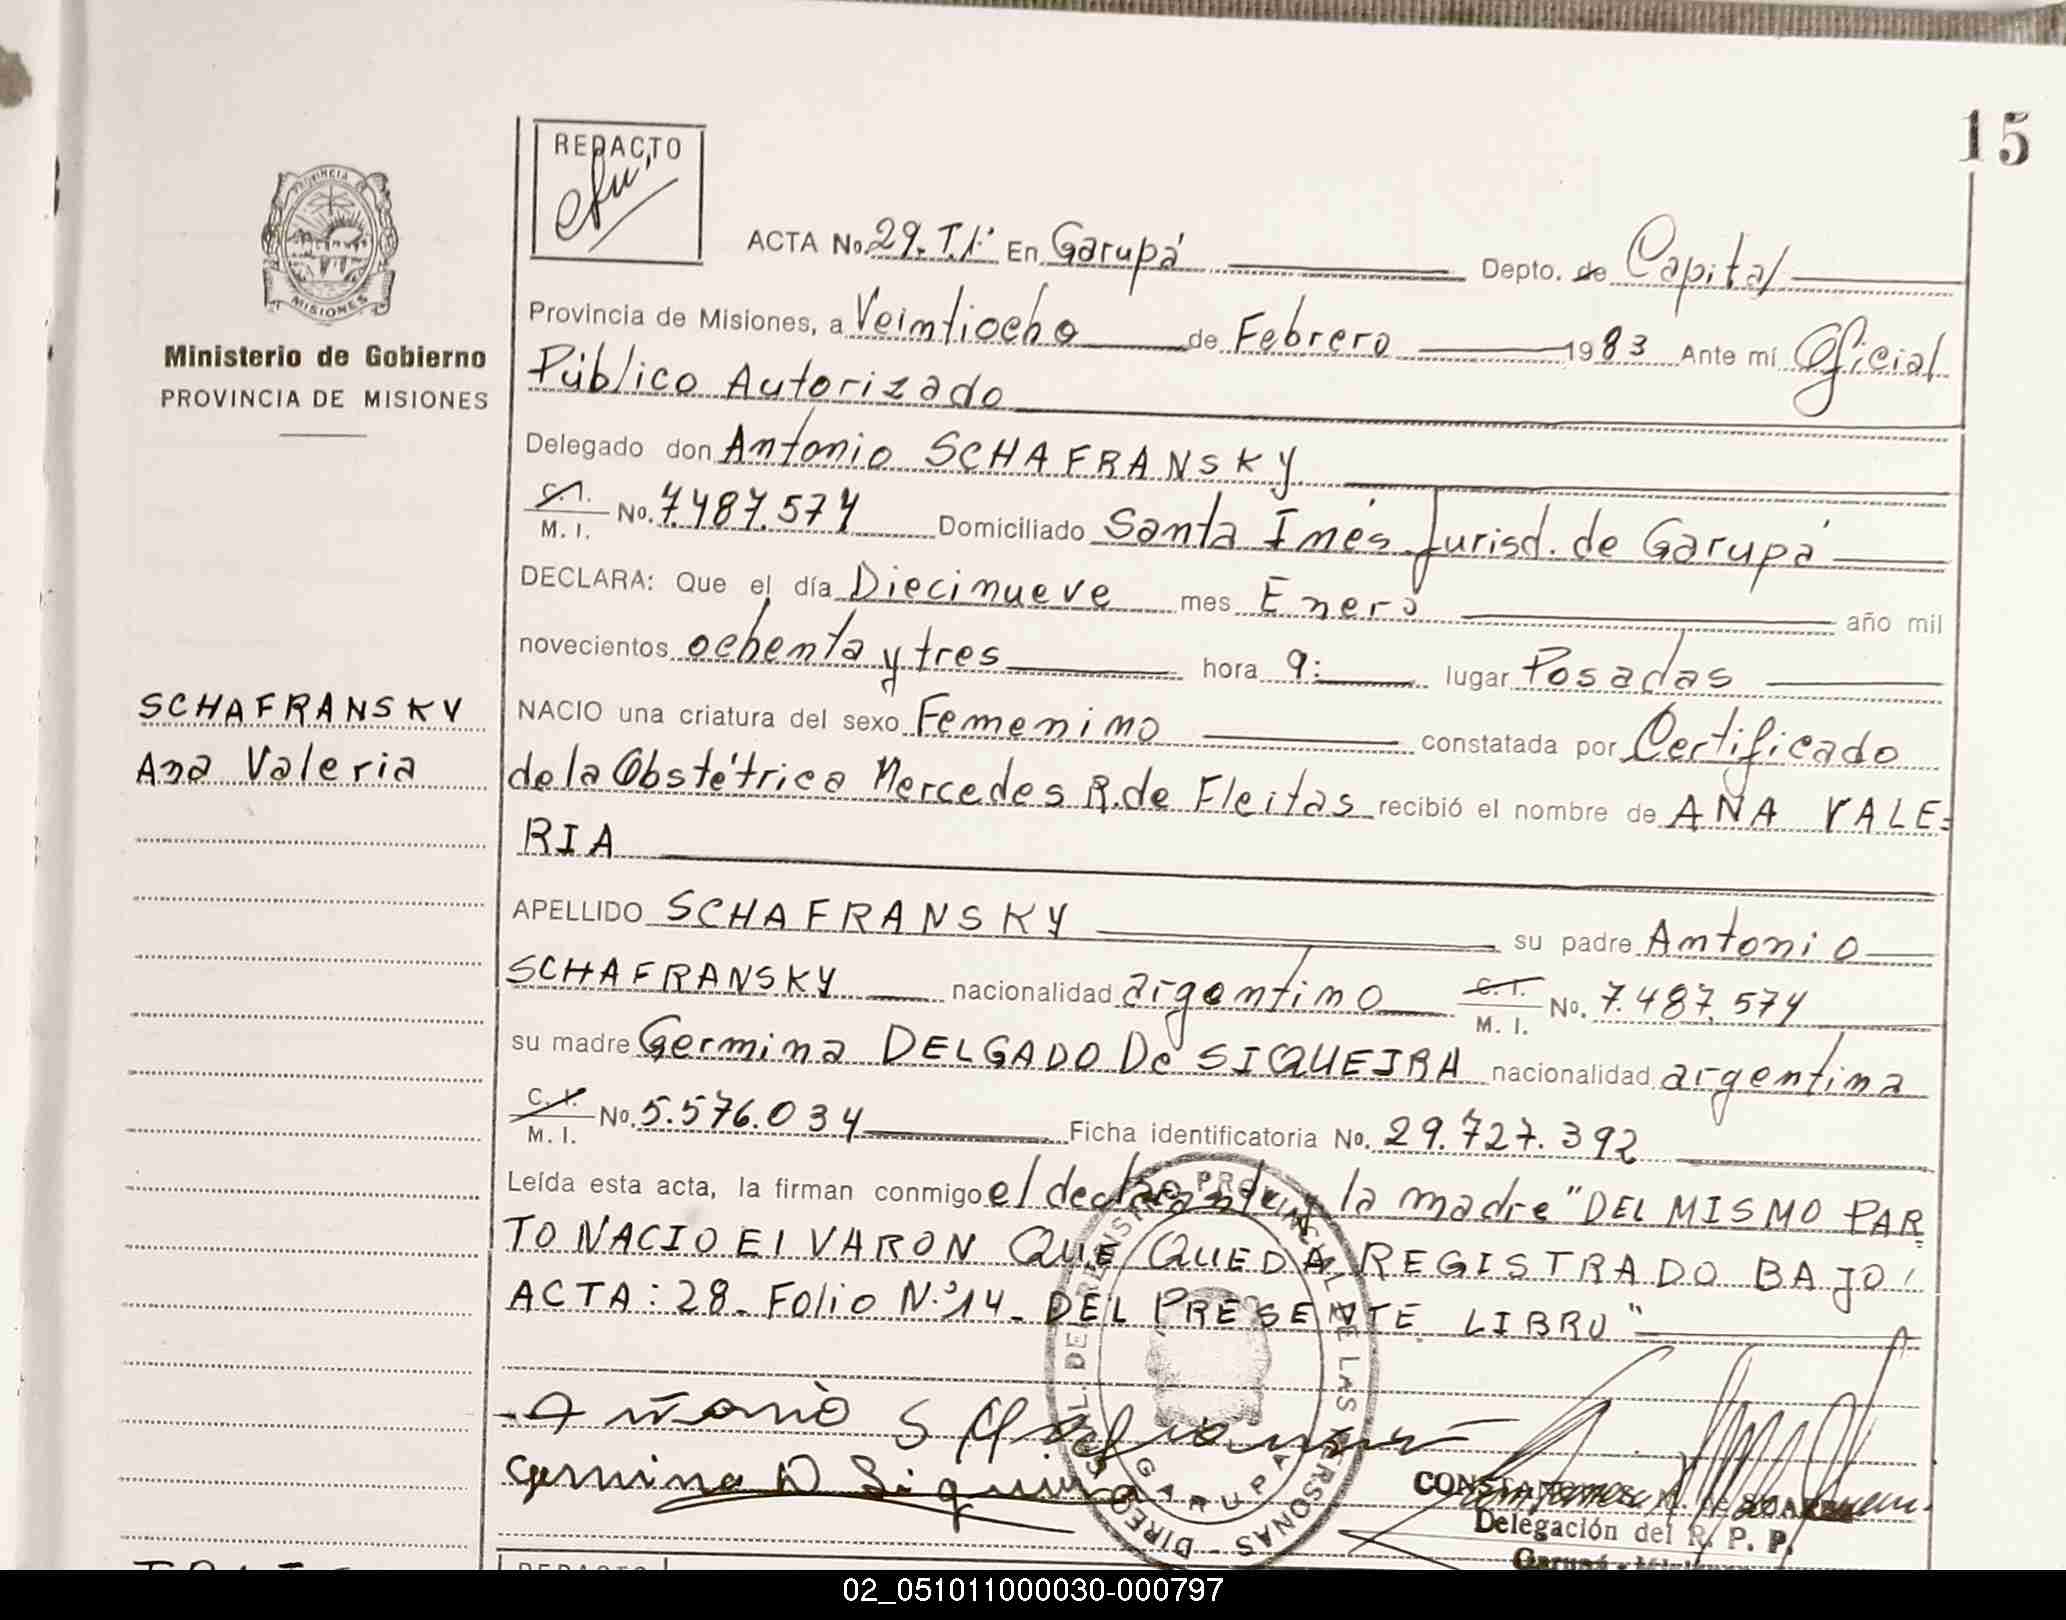 15
REDACTO
PROVINCIA DE
MISIONES
Ministerio de Gobierno
PROVINCIA DE MISIONES
ACTA No. 29. T.1° En Garupá Depto. de Capital
Provincia de Misiones, a Veintiocho de Febrero 1983 Ante mí Oficial
Público Autorizado
Delegado don Antonio SCHAFRANSKY
C.I. M. I. No. 7.487.574 Domiciliado Santa Inés Jurisd. de Garupá
DECLARA: Que el día Diecinueve mes Enero año mil
novecientos ochenta y tres hora 9: lugar Posadas
SCHAFRANSKY
Ana Valeria
NACIO una criatura del sexo Femenino constatada por Certificado
de la Obstétrica Mercedes R. de Fleitas recibió el nombre de ANA VALE=
RIA
APELLIDO SCHAFRANSKY su padre Antonio
SCHAFRANSKY nacionalidad argentino C.I. M. I. No. 7.487.574
su madre Germina DELGADO De SIQUEIRA nacionalidad argentina
C.I. M. I. No. 5.576.034 Ficha identificatoria No. 29.727.392
Leída esta acta, la firman conmigo el declarante y la madre "DEL MISMO PAR=
TO NACIO El VARON QUE QUEDA REGISTRADO BAJO
ACTA: 28- Folio N.° 14- DEL PRESENTE LIBRO"
Germina D Siqueira
GARUPA
Delegación del R. P. P.
REDACTO
02_051011000030-000797